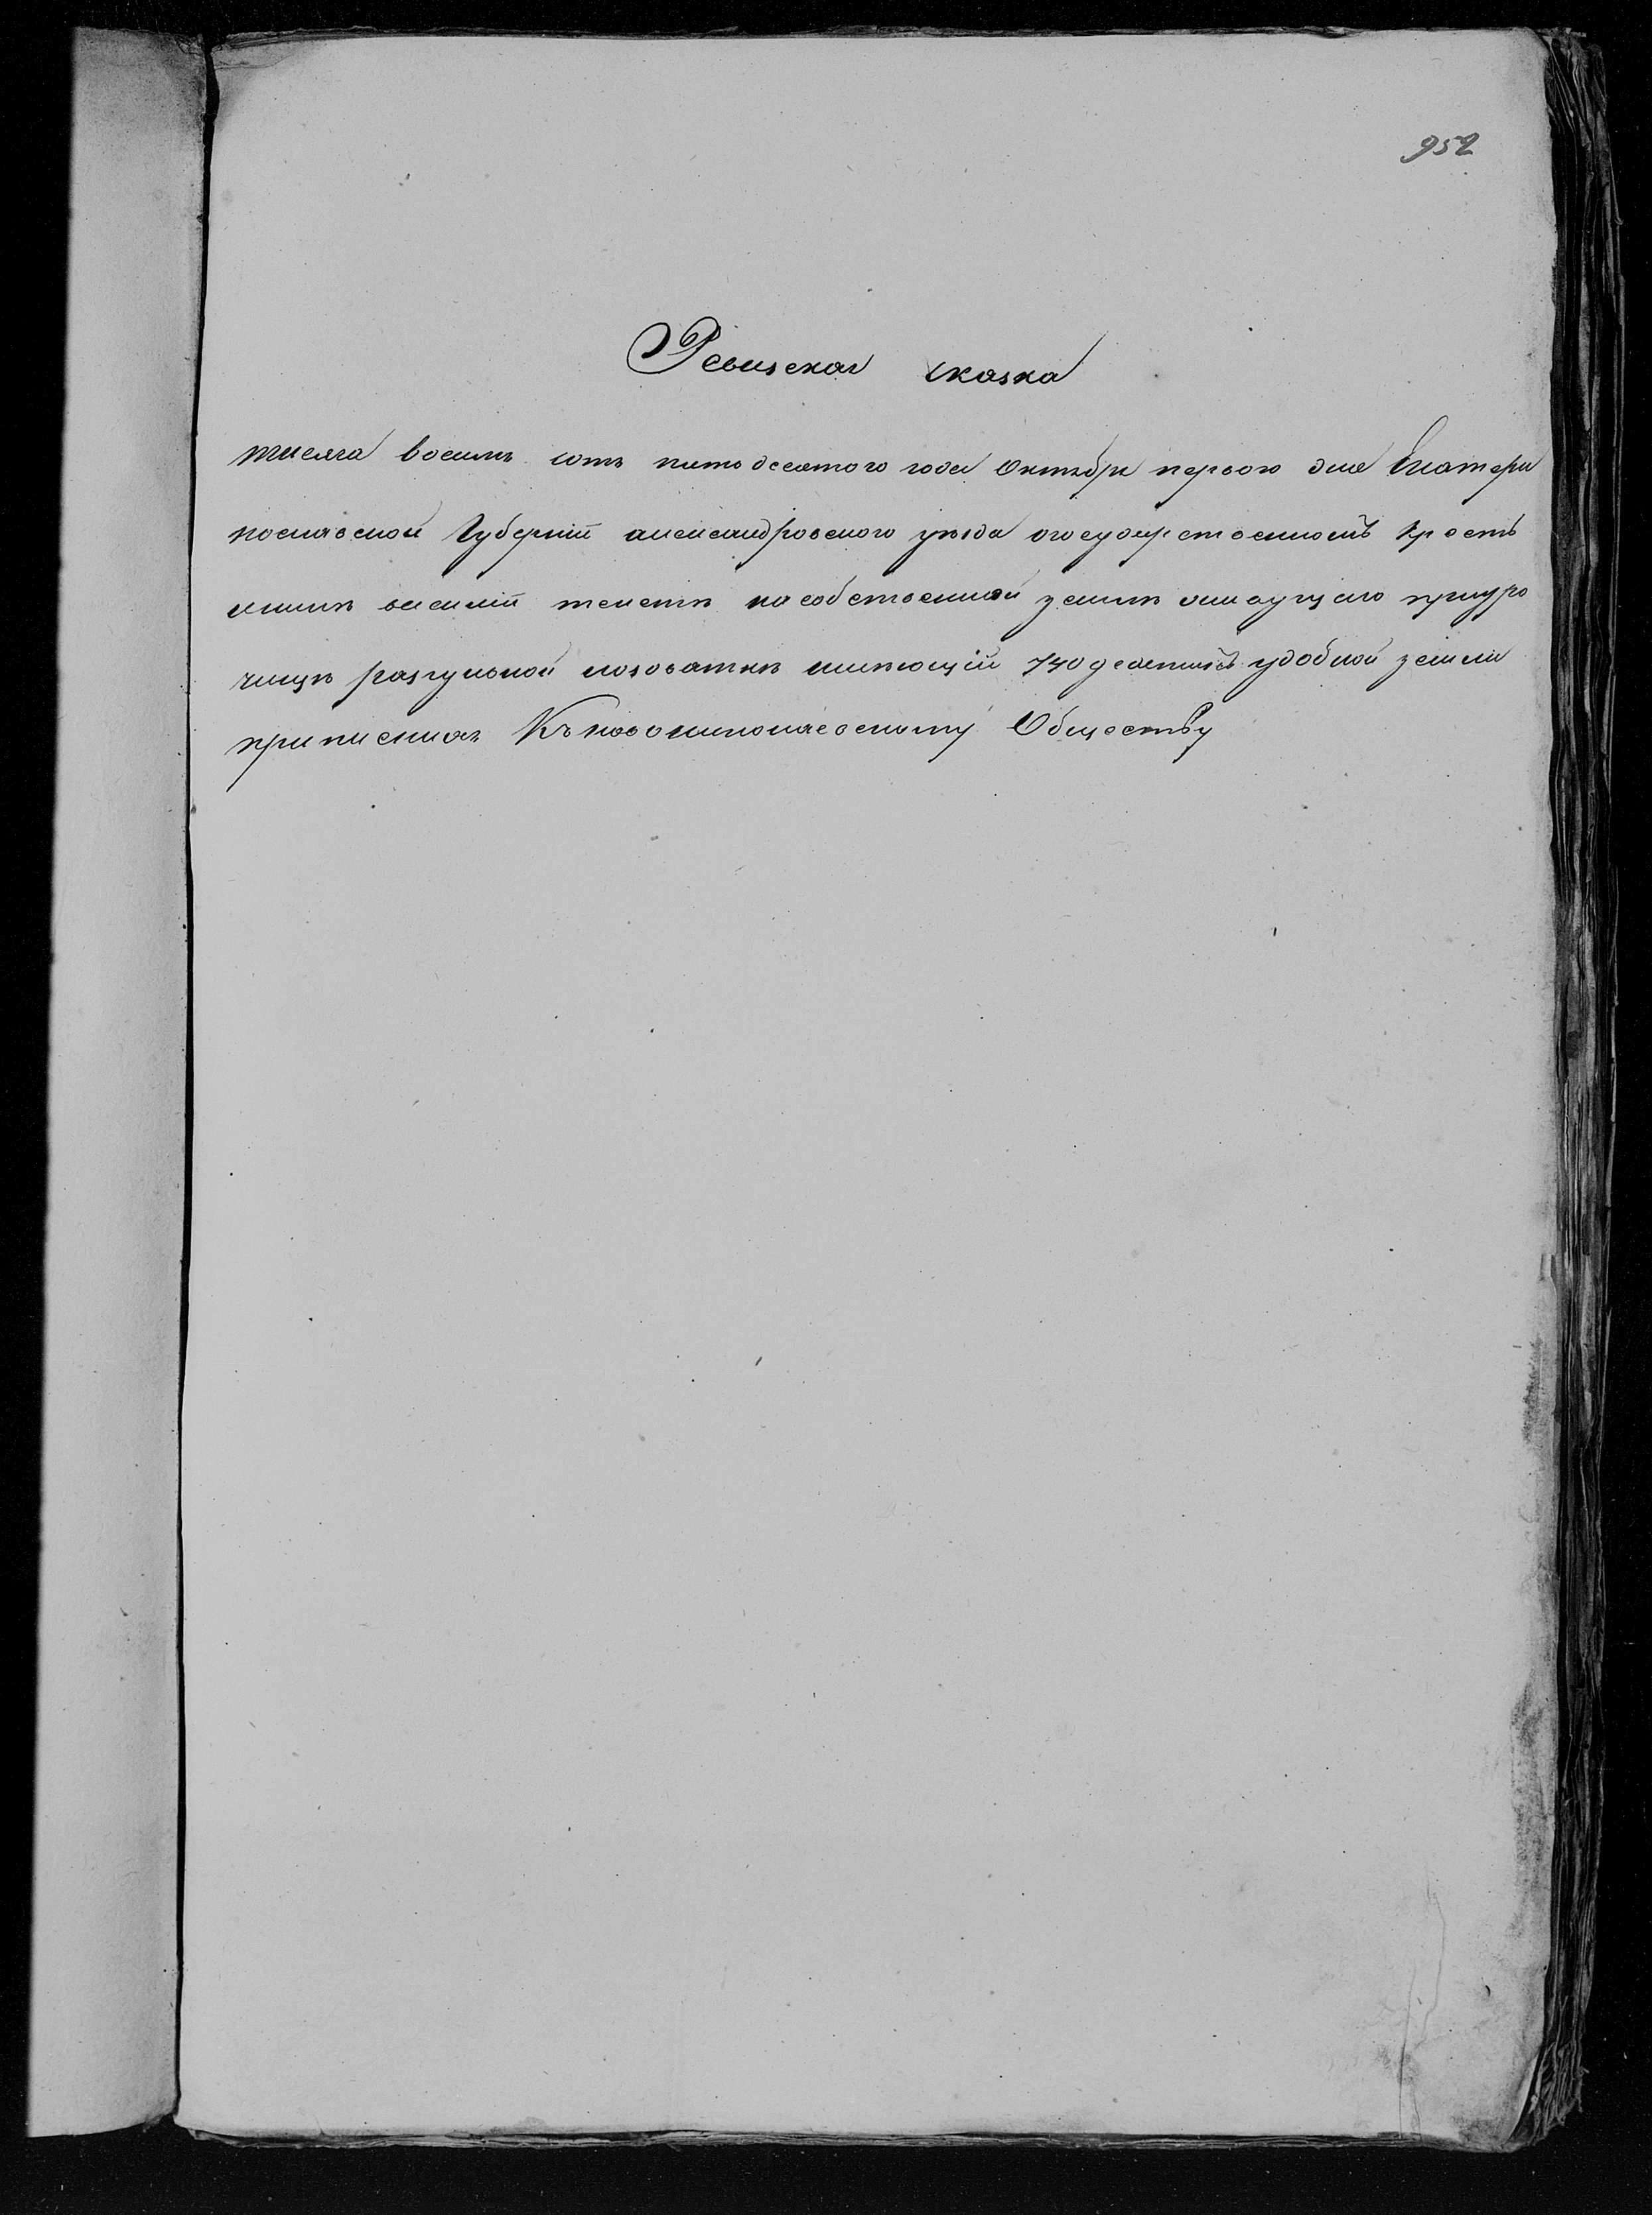 952
Ревизская сказка
тисяча восемь сотъ пятьдесятого года Октября первого дня Екатери
нославской Губерніи александровского уѣзда огосударственномъ Кресть
янинѣ василіи на собственной земли при уро
чищѣ разгульной лозоватки имѣющій 740 десятинъ удобной земли
приписанъ Къ новониколаевскому Обществу